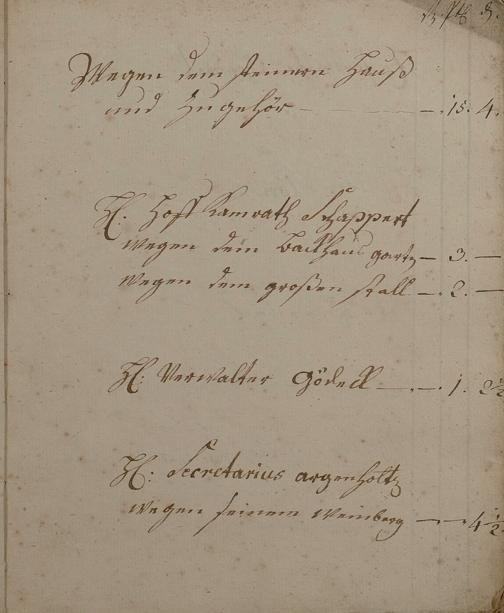 Wegen dem steinern Hauß
und Zugehör — . 15. 4.
H. Hoff Camrath Schappert
wegen dem backhaus gartz — 3. —
wegen dem großen stall — . 2. —
H: Verwalter Gödeck — . — . 1. 2½
H: Secretarius argenholtz
wegen seinem Weinberg — — 4½